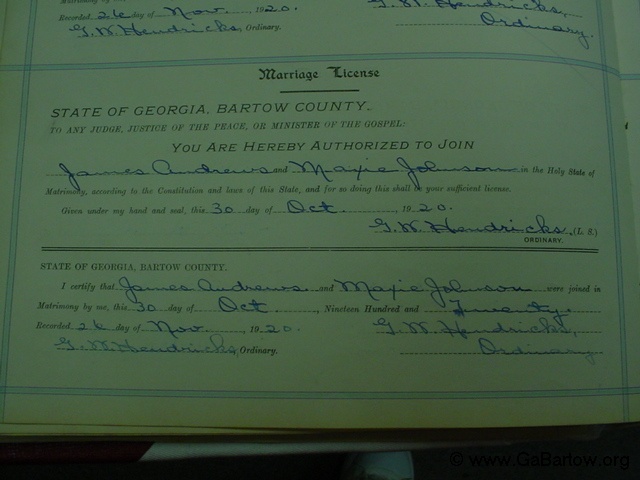 Recorded 26 day of Nov. 1920. G. W. Hendricks,
G. W. Hendricks, Ordinary. Ordinary.
Marriage License
STATE OF GEORGIA, BARTOW COUNTY.
TO ANY JUDGE, JUSTICE OF THE PEACE, OR MINISTER OF THE GOSPEL:
YOU ARE HEREBY AUTHORIZED TO JOIN
James Andrews and Maxie Johnson in the Holy State of
Matrimony, according to the Constitution and laws of this State, and for so doing this shall be your sufficient license.
Given under my hand and seal, this 30 day of Oct. 1920.
G. W. Hendricks, (L. S.)
ORDINARY.
STATE OF GEORGIA, BARTOW COUNTY.
I certify that James Andrews and Maxie Johnson were joined in
Matrimony by me, this 30 day of Oct, Nineteen Hundred and Twenty.
Recorded 26 day of Nov. 1920. G. W. Hendricks,
G. W. Hendricks, Ordinary. Ordinary.
© www.GaBartow.org